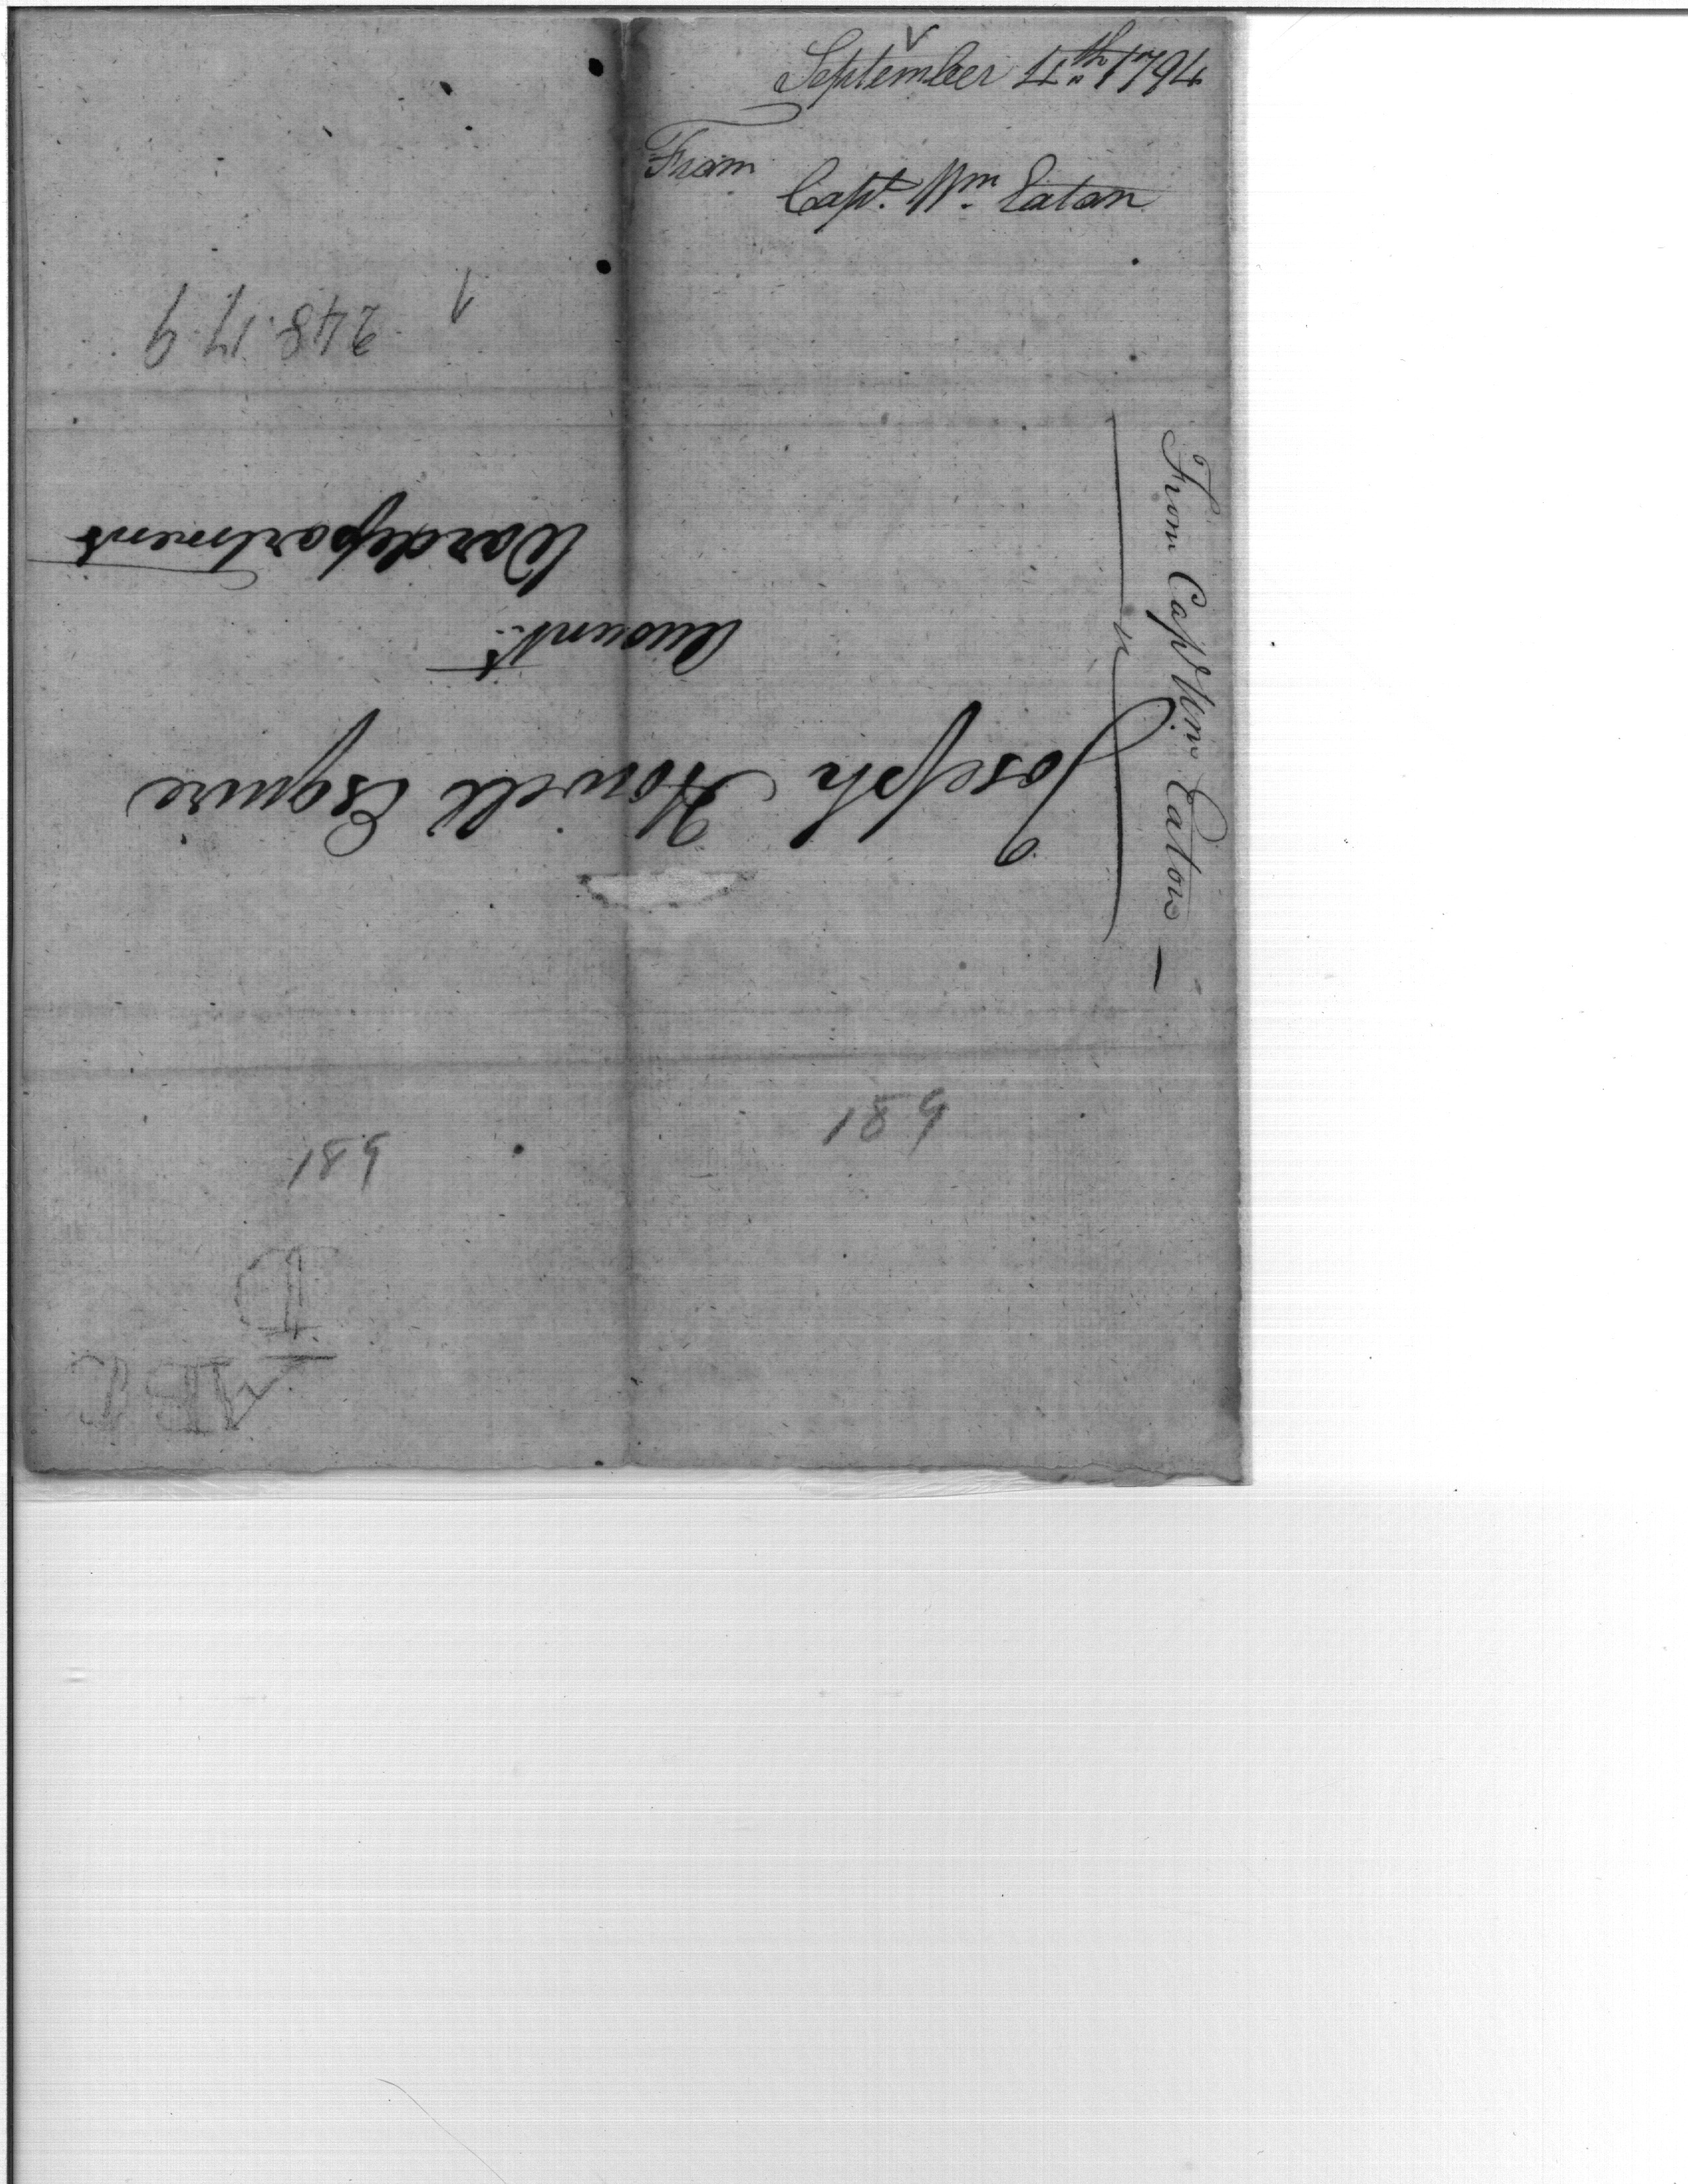 September 4th 1794
From
Capt. Wm. Eaton
From Capt Wm Eaton —
Joseph Howell Esquire
Accountt.
Wardepartment
248.17.9
1
189
189